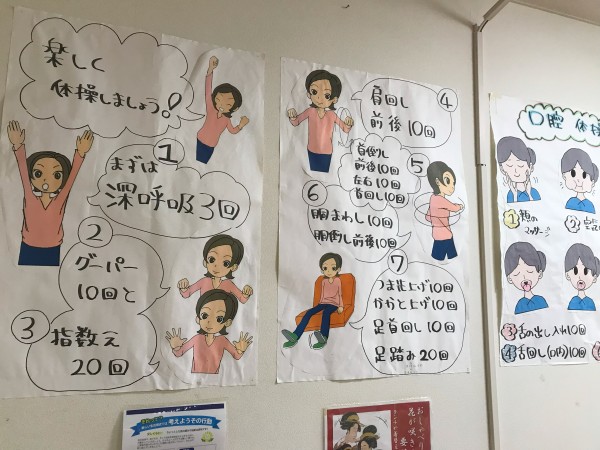 楽しく
体操しましょう!
① まずは
深呼吸3回
②
グーパー
10回と
③ 指数え
20回
④ 肩回し
前後10回
⑤ 首倒し
前後10回
左右10回
首回し10回
⑥
胴まわし10回
胴倒し前後10回
⑦
つま先上げ10回
かかと上げ10回
足首回し10回
足踏み20回
口腔体操
① 頬の
マッサージ
②
③ 舌の出し入れ10回
④ 舌回し(口内)10回
考えようその行動
おしゃべり
花が咲き